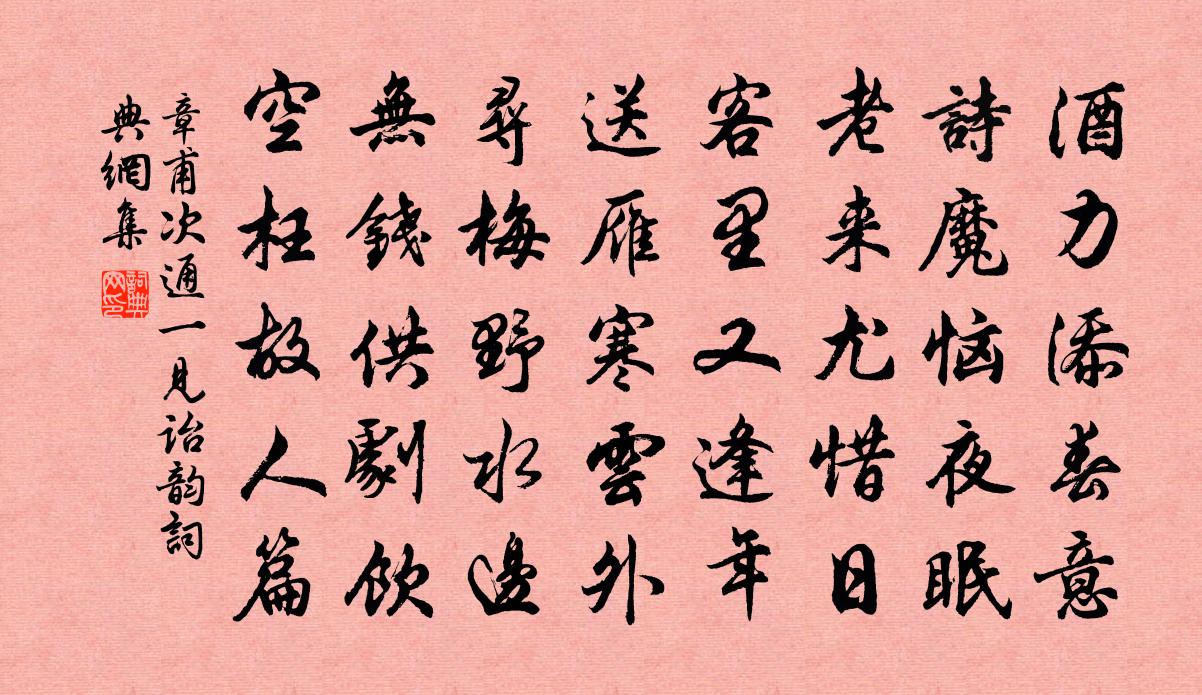 酒力添春意
詩魔惱夜眠
老来尤惜日
客里又逢年
送雁寒雲外
尋梅野水邊
無錢供劇飲
空枉故人篇
章甫次通一見詒韵詞
典網集
詞典
网印